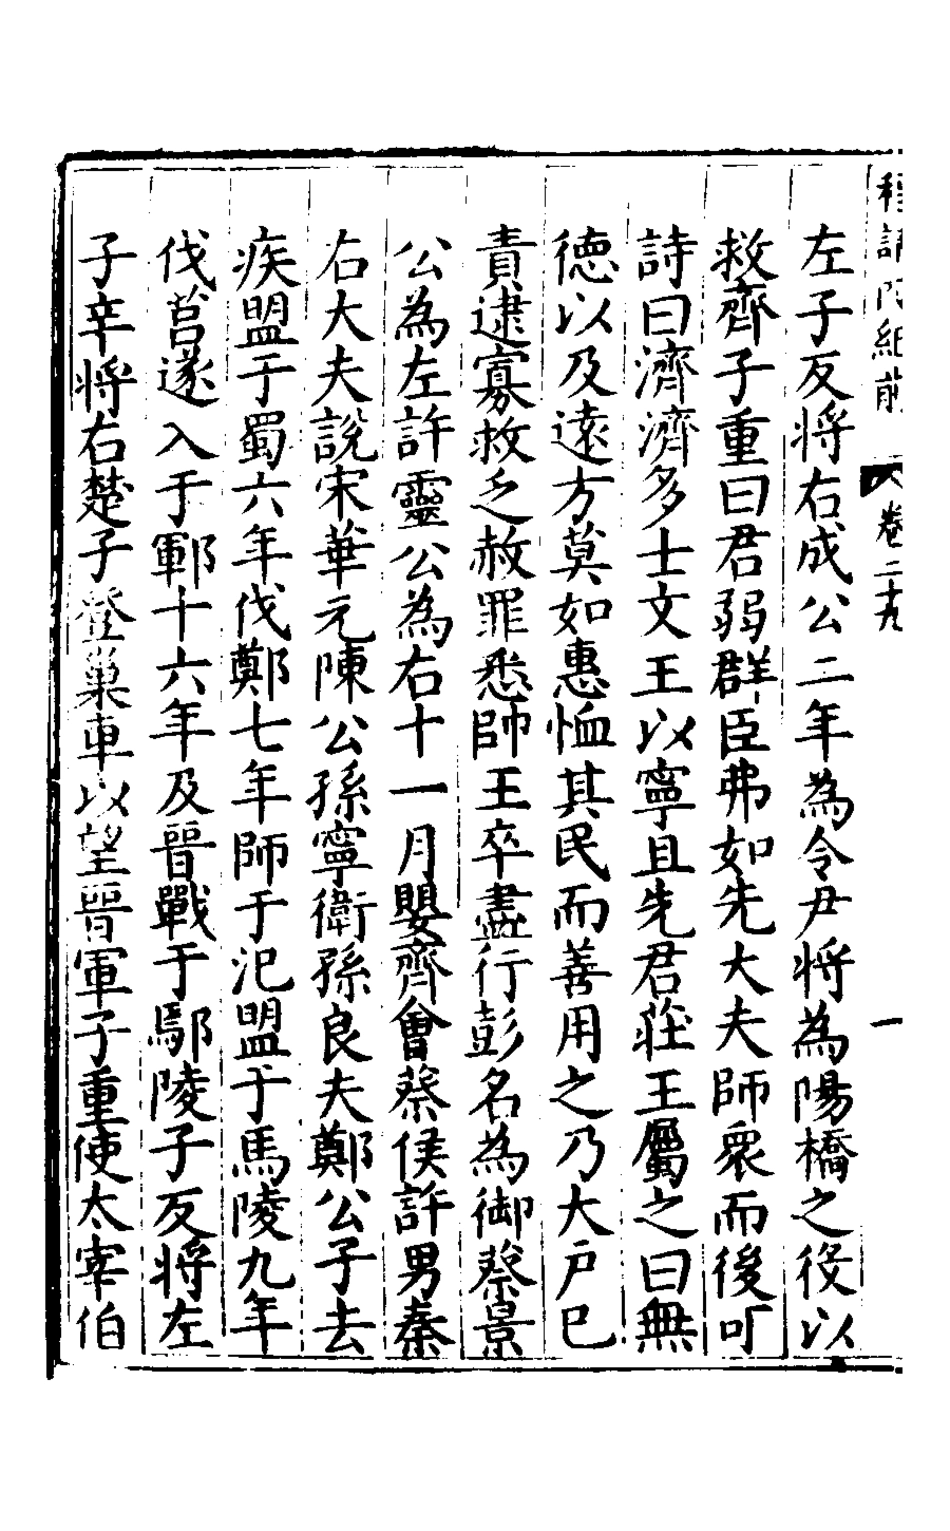 卷二十九
一
左子反将右成公二年為令尹将為陽橋之役以
救齊子重曰君弱群臣弗如先大夫師衆而後可
詩曰濟濟多士文王以寧且先君莊王屬之曰無
德以及遠方莫如惠恤其民而善用之乃大戶巳
責逮寡救乏赦罪悉師王卒盡行彭名為御蔡景
公為左許靈公為右十一月嬰齊會蔡侯許男秦
右大夫說宋華元陳公孫寧衛孫良夫鄭公子去
疾盟于蜀六年伐鄭七年師于汜盟于馬陵九年
伐莒遂入于鄆十六年及晉戰于鄢陵子反将左
子辛将右楚子登巢車以望晉軍子重使太宰伯